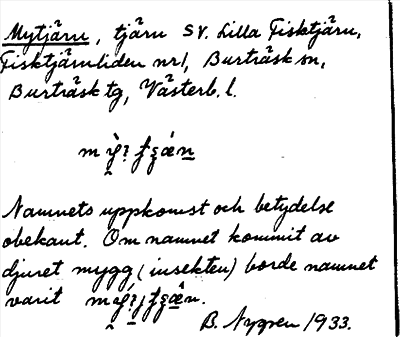 Mytjärn, tjärn SV. Lilla Fisktjärn,
Fisktjärnliden nr1, Burträsk sn,
Burträsk tg, Västerb. l.
Namnets uppkomst och betydelse
obekant. Om namnet kommit av
djuret mygg (insekten) borde namnet
varit
B. Nygren 1933.